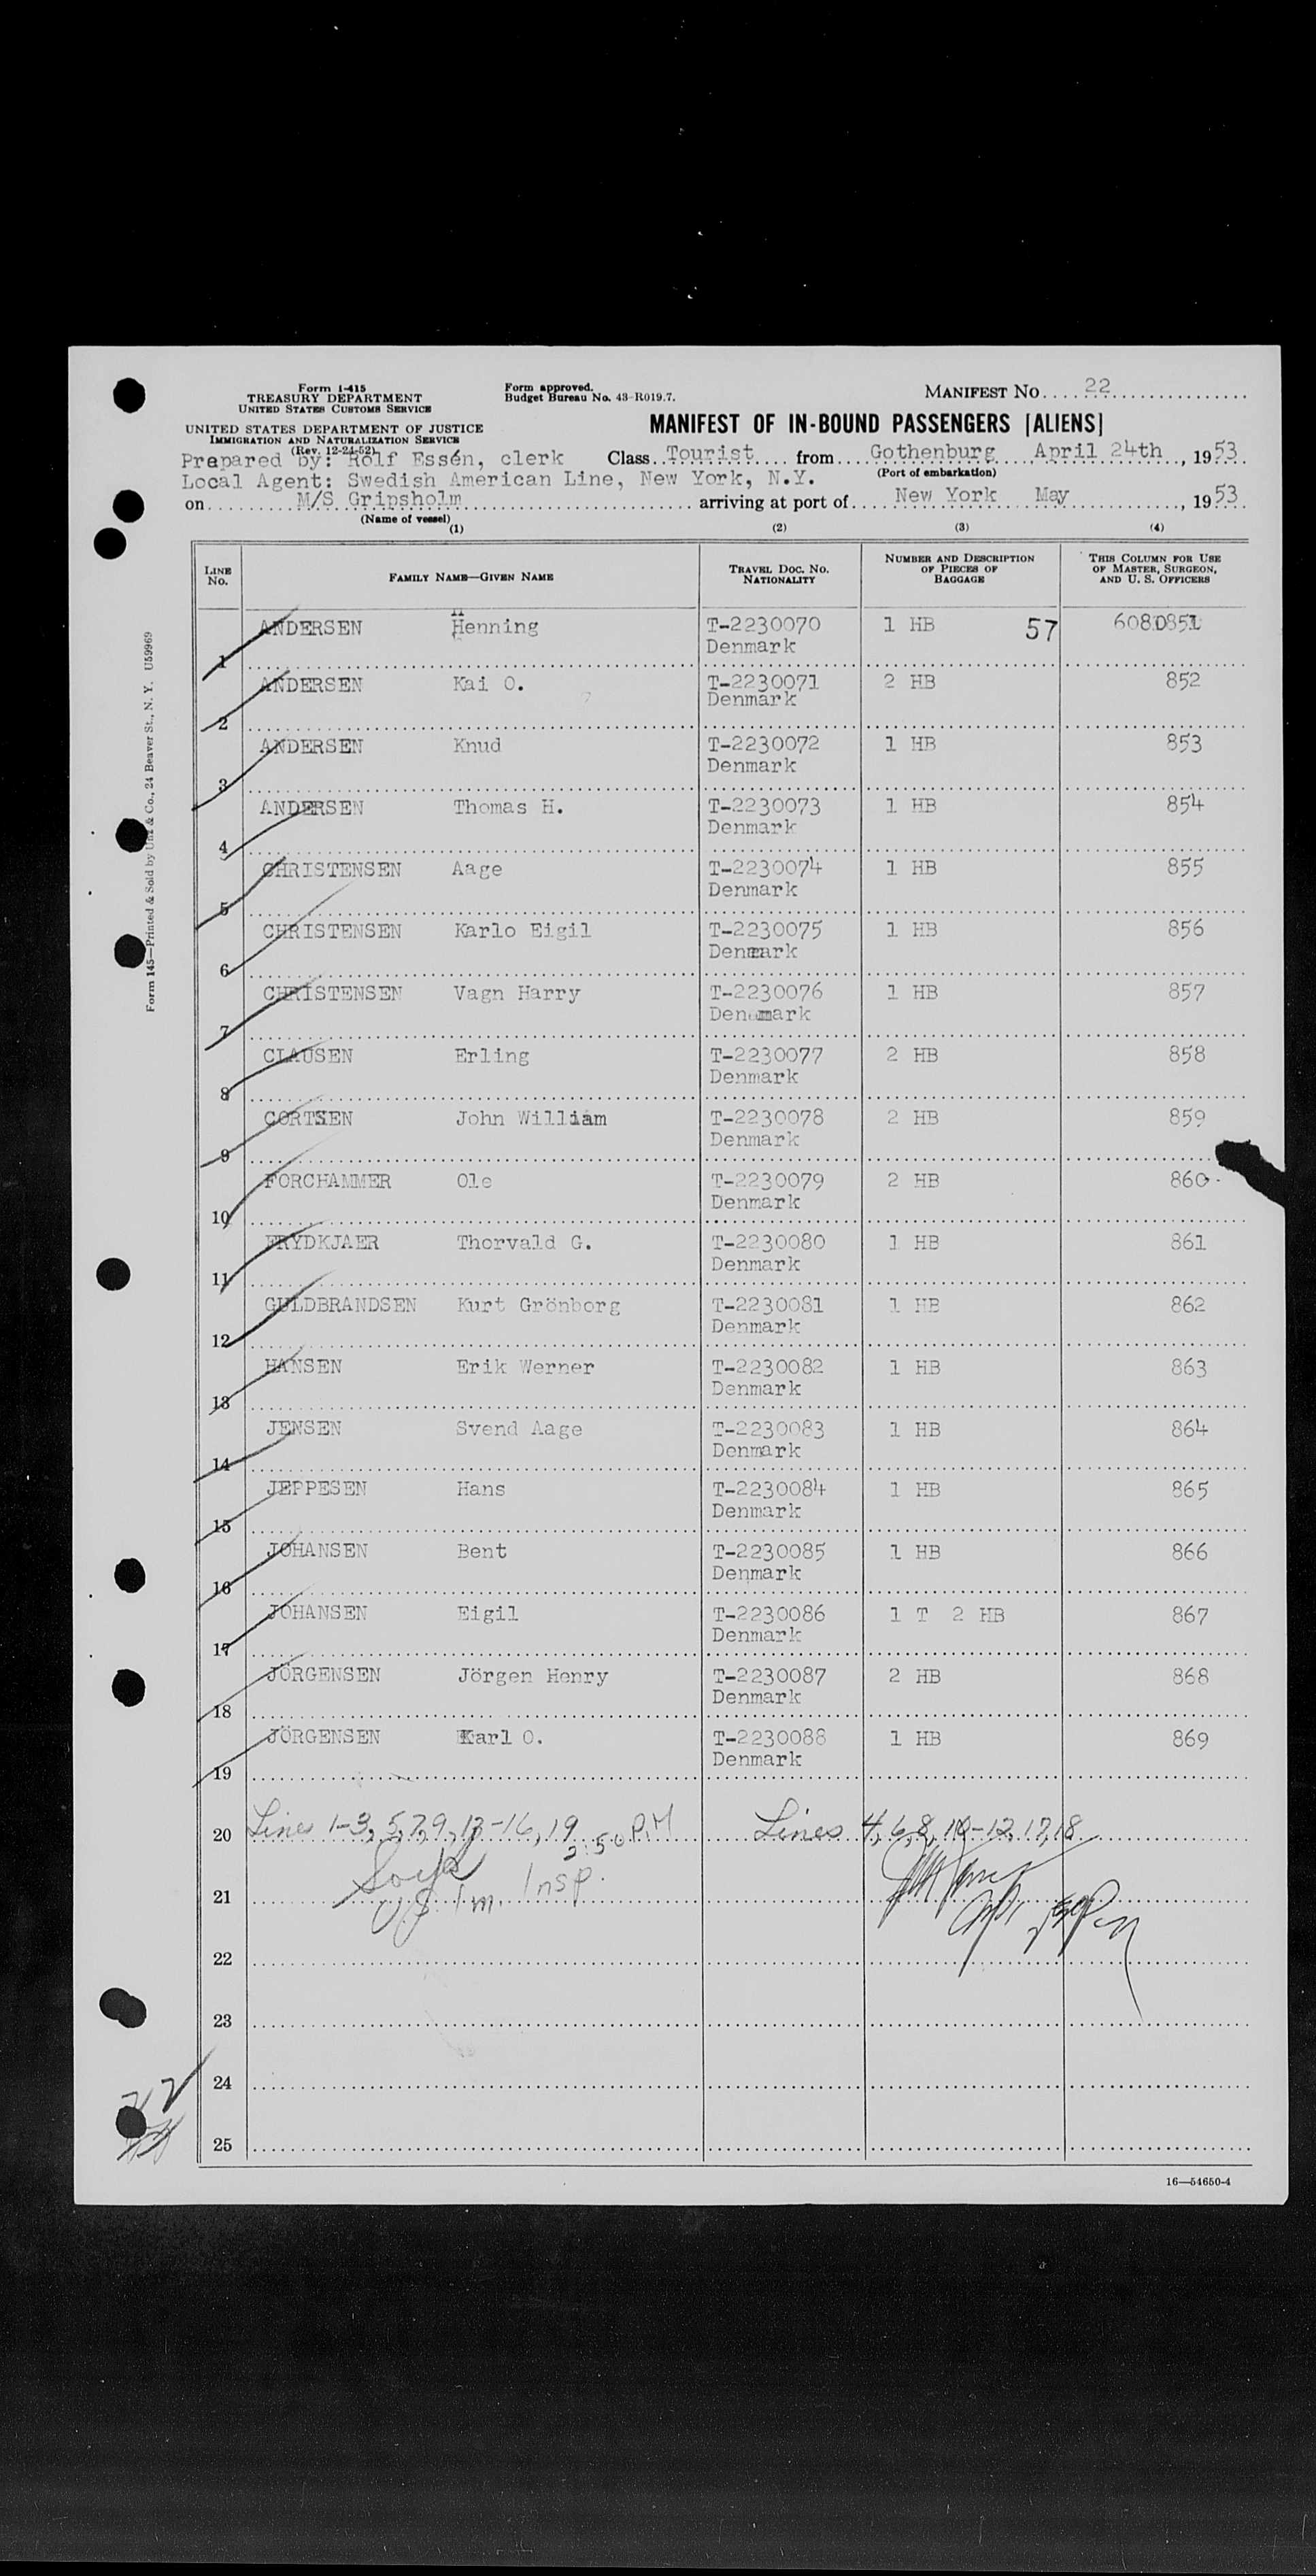 Form I-415
TREASURY DEPARTMENT
UNITED STATES CUSTOMS SERVICE
UNITED STATES DEPARTMENT OF JUSTICE
IMMIGRATION AND NATURALIZATION SERVICE
(Rev. 12-24-52)
Form approved.
Budget Bureau No. 43-R019.7.
MANIFEST No. 22
MANIFEST OF IN-BOUND PASSENGERS [ALIENS]
Prepared by: Rolf Essén, clerk Class Tourist from Gothenburg April 24th, 1953
(Port of embarkation)
Local Agent: Swedish American Line, New York, N.Y.
on M/S Gripsholm arriving at port of New York May, 1953
(Name of vessel)
(1) (2) (3) (4)
LINE No. FAMILY NAME—GIVEN NAME TRAVEL DOC. NO. NATIONALITY NUMBER AND DESCRIPTION OF PIECES OF BAGGAGE THIS COLUMN FOR USE OF MASTER, SURGEON, AND U. S. OFFICERS
1 ANDERSEN Henning T-2230070 1 HB 57 6080851
Denmark
2 ANDERSEN Kai O. T-2230071 2 HB 852
Denmark
3 ANDERSEN Knud T-2230072 1 HB 853
Denmark
4 ANDERSEN Thomas H. T-2230073 1 HB 854
Denmark
5 CHRISTENSEN Aage T-2230074 1 HB 855
Denmark
6 CHRISTENSEN Karlo Eigil T-2230075 1 HB 856
Denmark
7 CHRISTENSEN Vagn Harry T-2230076 1 HB 857
Denmark
8 CLAUSEN Erling T-2230077 2 HB 858
Denmark
9 CORTSEN John William T-2230078 2 HB 859
Denmark
10 FORCHAMMER Ole T-2230079 2 HB 860
Denmark
11 FRYDKJAER Thorvald G. T-2230080 1 HB 861
Denmark
12 GULDBRANDSEN Kurt Grönborg T-2230081 1 HB 862
Denmark
13 HANSEN Erik Werner T-2230082 1 HB 863
Denmark
14 JENSEN Svend Aage T-2230083 1 HB 864
Denmark
15 JEPPESEN Hans T-2230084 1 HB 865
Denmark
16 JOHANSEN Bent T-2230085 1 HB 866
Denmark
17 JOHANSEN Eigil T-2230086 1 T 2 HB 867
Denmark
18 JÖRGENSEN Jörgen Henry T-2230087 2 HB 868
Denmark
19 JÖRGENSEN Karl O. T-2230088 1 HB 869
Denmark
20 Lines 1-3, 5, 7, 9, 13-16, 19 2:50 P.M Lines 4, 6, 8, 10-12, 17, 18
21 US Im. Insp.
22
23
24
25
22
16—54650-4
Form 145—Printed & Sold by Unz & Co., 24 Beaver St., N. Y. U59969